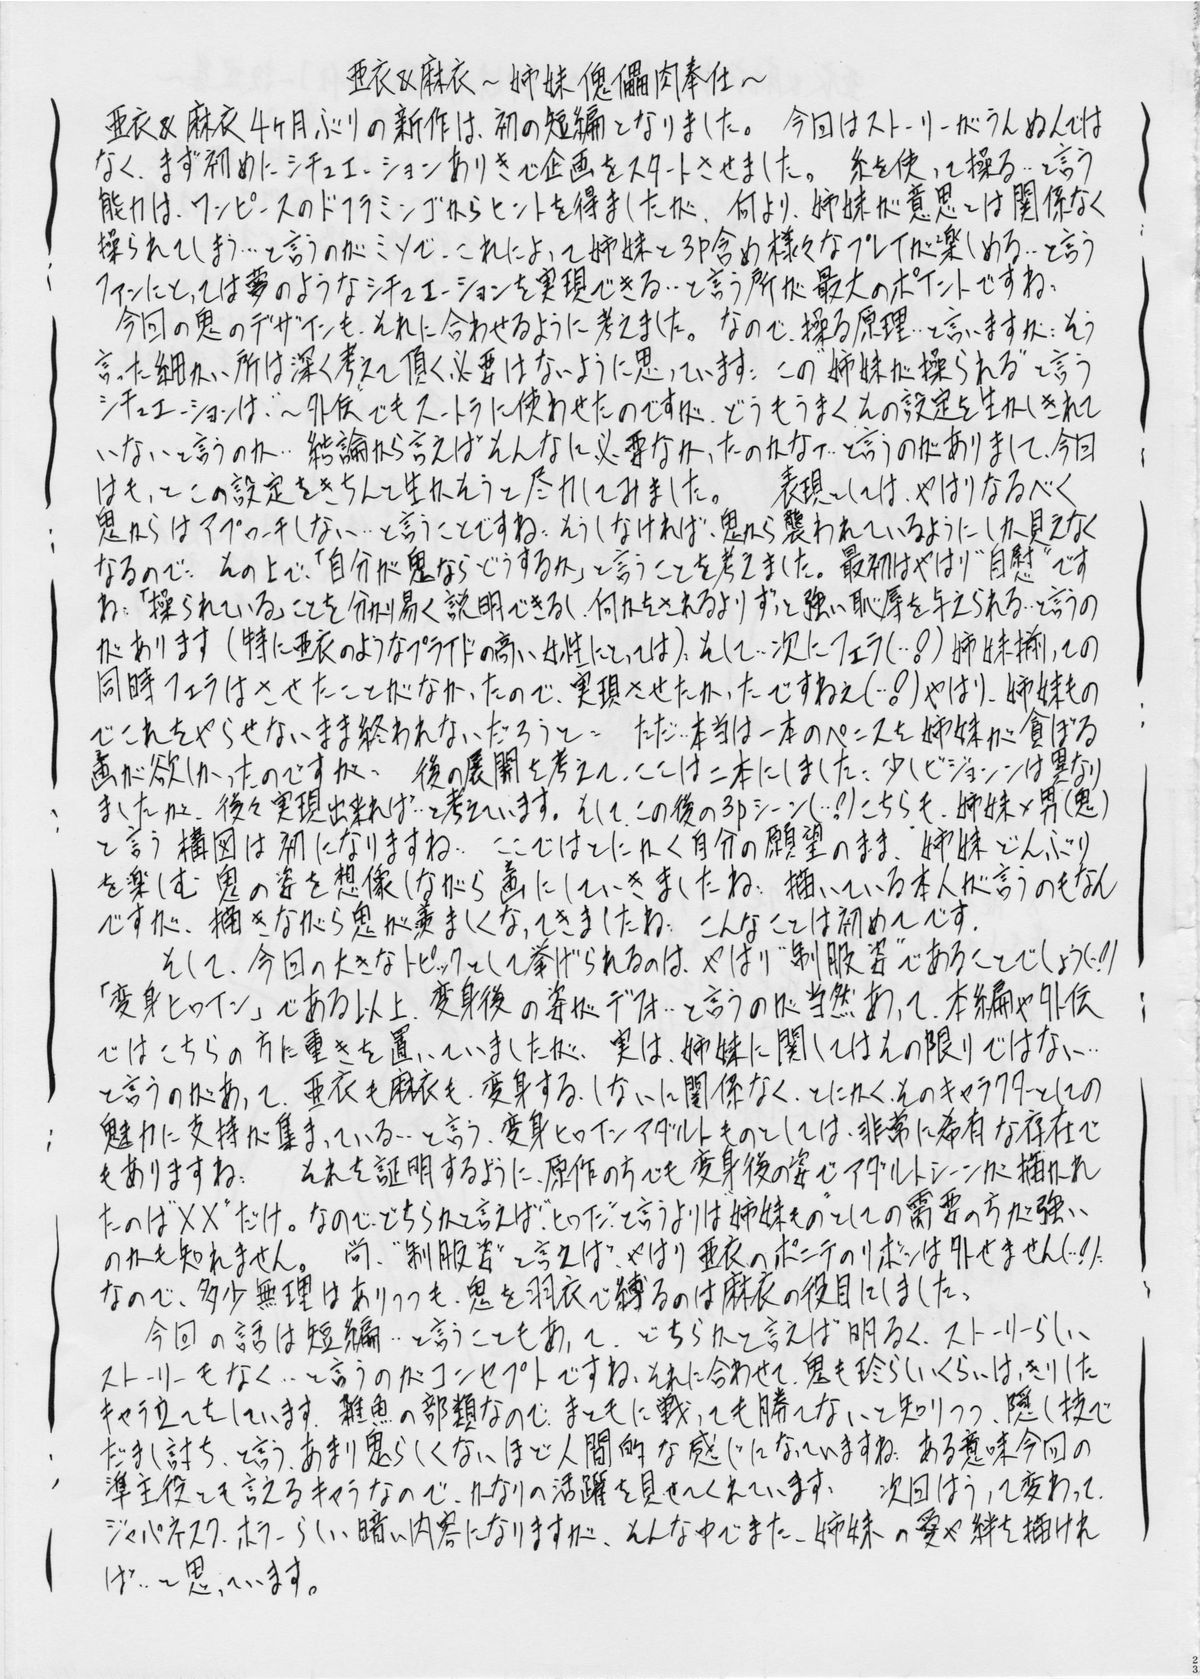 亜衣&麻衣～姉妹傀儡肉奉仕～
亜衣&麻衣4ヶ月ぶりの新作は、初の短編となりました。 今回はストーリーがうんぬんでは
なく、まず初めにシチュエーションありきで企画をスタートさせました。 糸を使って操る…と言う
能力は、ワンピースのドフラミンゴからヒントを得ましたが、何より、姉妹が意思とは関係なく
操られてしまう…と言うのがミソで、これによって姉妹と3P含め様々なプレイが楽しめる…と言う
ファンにとっては夢のようなシチュエーションを実現できる…と言う所が最大のポイントですね、
今回の鬼のデザインも、それに合わせるように考えました。なので、操る原理…と言いますか…そう
言った細かい所は深く考えて頂く必要はないように思っています… この“姉妹が操られる”と言う
シチュエーションは、～外伝でもスートラに使わせたのですが、どうもうまくその設定を生かしきれて
いないと言うのか… 結論から言えばそんなに必要なかったのかなァ…と言うのがありまして、今回
はもっとこの設定をきちんと生かそうと尽力してみました。 表現としては、やはりなるべく
鬼からはアプローチしない…と言うことですね… そうしなければ、鬼から襲われているようにしか見えなく
なるので… その上で、「自分が鬼ならどうするか」と言うことを考えました。最初はやはり“自慰”です
ね…「操られている」ことを分かり易く説明できるし、何かをされるよりずっと強い恥辱を与えられる…と言うの
があります(特に亜衣のようなプライドの高い女性にとっては)、そして…次にフェラ(…!)姉妹揃っての
同時フェラはさせたことがなかったので、実現させたかったですねぇ(…!)やはり、姉妹もの
でこれをやらせないまま終われないだろうと… ただ…本当は一本のペニスを姉妹が貪ぼる
画が欲しかったのですが、 後の展開を考えて、ここは二本にしました… 少しビジョンは異なり
ましたが、後々実現出来れば…と考えています。そして、この後の3pシーン(…!)こちらも、姉妹×男(鬼)
と言う構図は初になりますね… ここではとにかく自分の願望のまま、姉妹どんぶり
を楽しむ鬼の姿を想像しながら画にしていきましたね… 描いている本人が言うのもなん
ですが、描きながら鬼が羨ましくなってきましたね… こんなことは初めてです。
そして、今回の大きなトピックとして挙げられるのは、やはり“制服姿”であることでしょう(…!)
「変身ヒロイン」である以上、変身後の姿がデフォ…と言うのが当然あって、本編や外伝
ではこちらの方に重きを置いていましたが、実は、姉妹に関してはその限りではない…
と言うのがあって、亜衣も麻衣も、変身する、しないに関係なく、とにかくそのキャラクターとしての
魅力に支持が集まっている…と言う、変身ヒロインアダルトものとしては、非常に希有な存在で
もありますね… それを証明するように、原作の方でも変身後の姿でアダルトシーンが描かれ
たのは“XX”だけ。なので、どちらかと言えば“ヒロイン”と言うよりは“姉妹もの”としての需要の方が強い
のかも知れません。 尚、“制服姿”と言えば、やはり亜衣のポニテのリボンは外せません(…!)、
なので、多少無理はありつつも、鬼を羽衣で縛るのは麻衣の役目にしました、
今回の話は短編…と言うこともあって、どちらかと言えば明るく、ストーリーらしい
ストーリーもなく…と言うのがコンセプトですね、それに合わせて、鬼も珍らしいくらいはっきりした
キャラ立てをしています、雑魚の部類なので、まともに戦っても勝てないと知りつつ、隠し技で
だまし討ち、と言う、あまり鬼らしくないほど人間的な感じになっていますね… ある意味今回の
準主役とも言えるキャラなので、かなりの活躍を見せてくれています、 次回はうって変わって、
ジャパネスク、ホラーらしい暗い内容になりますが、そんな中でまた、姉妹の愛や絆を描けれ
ば…と思っています。
23